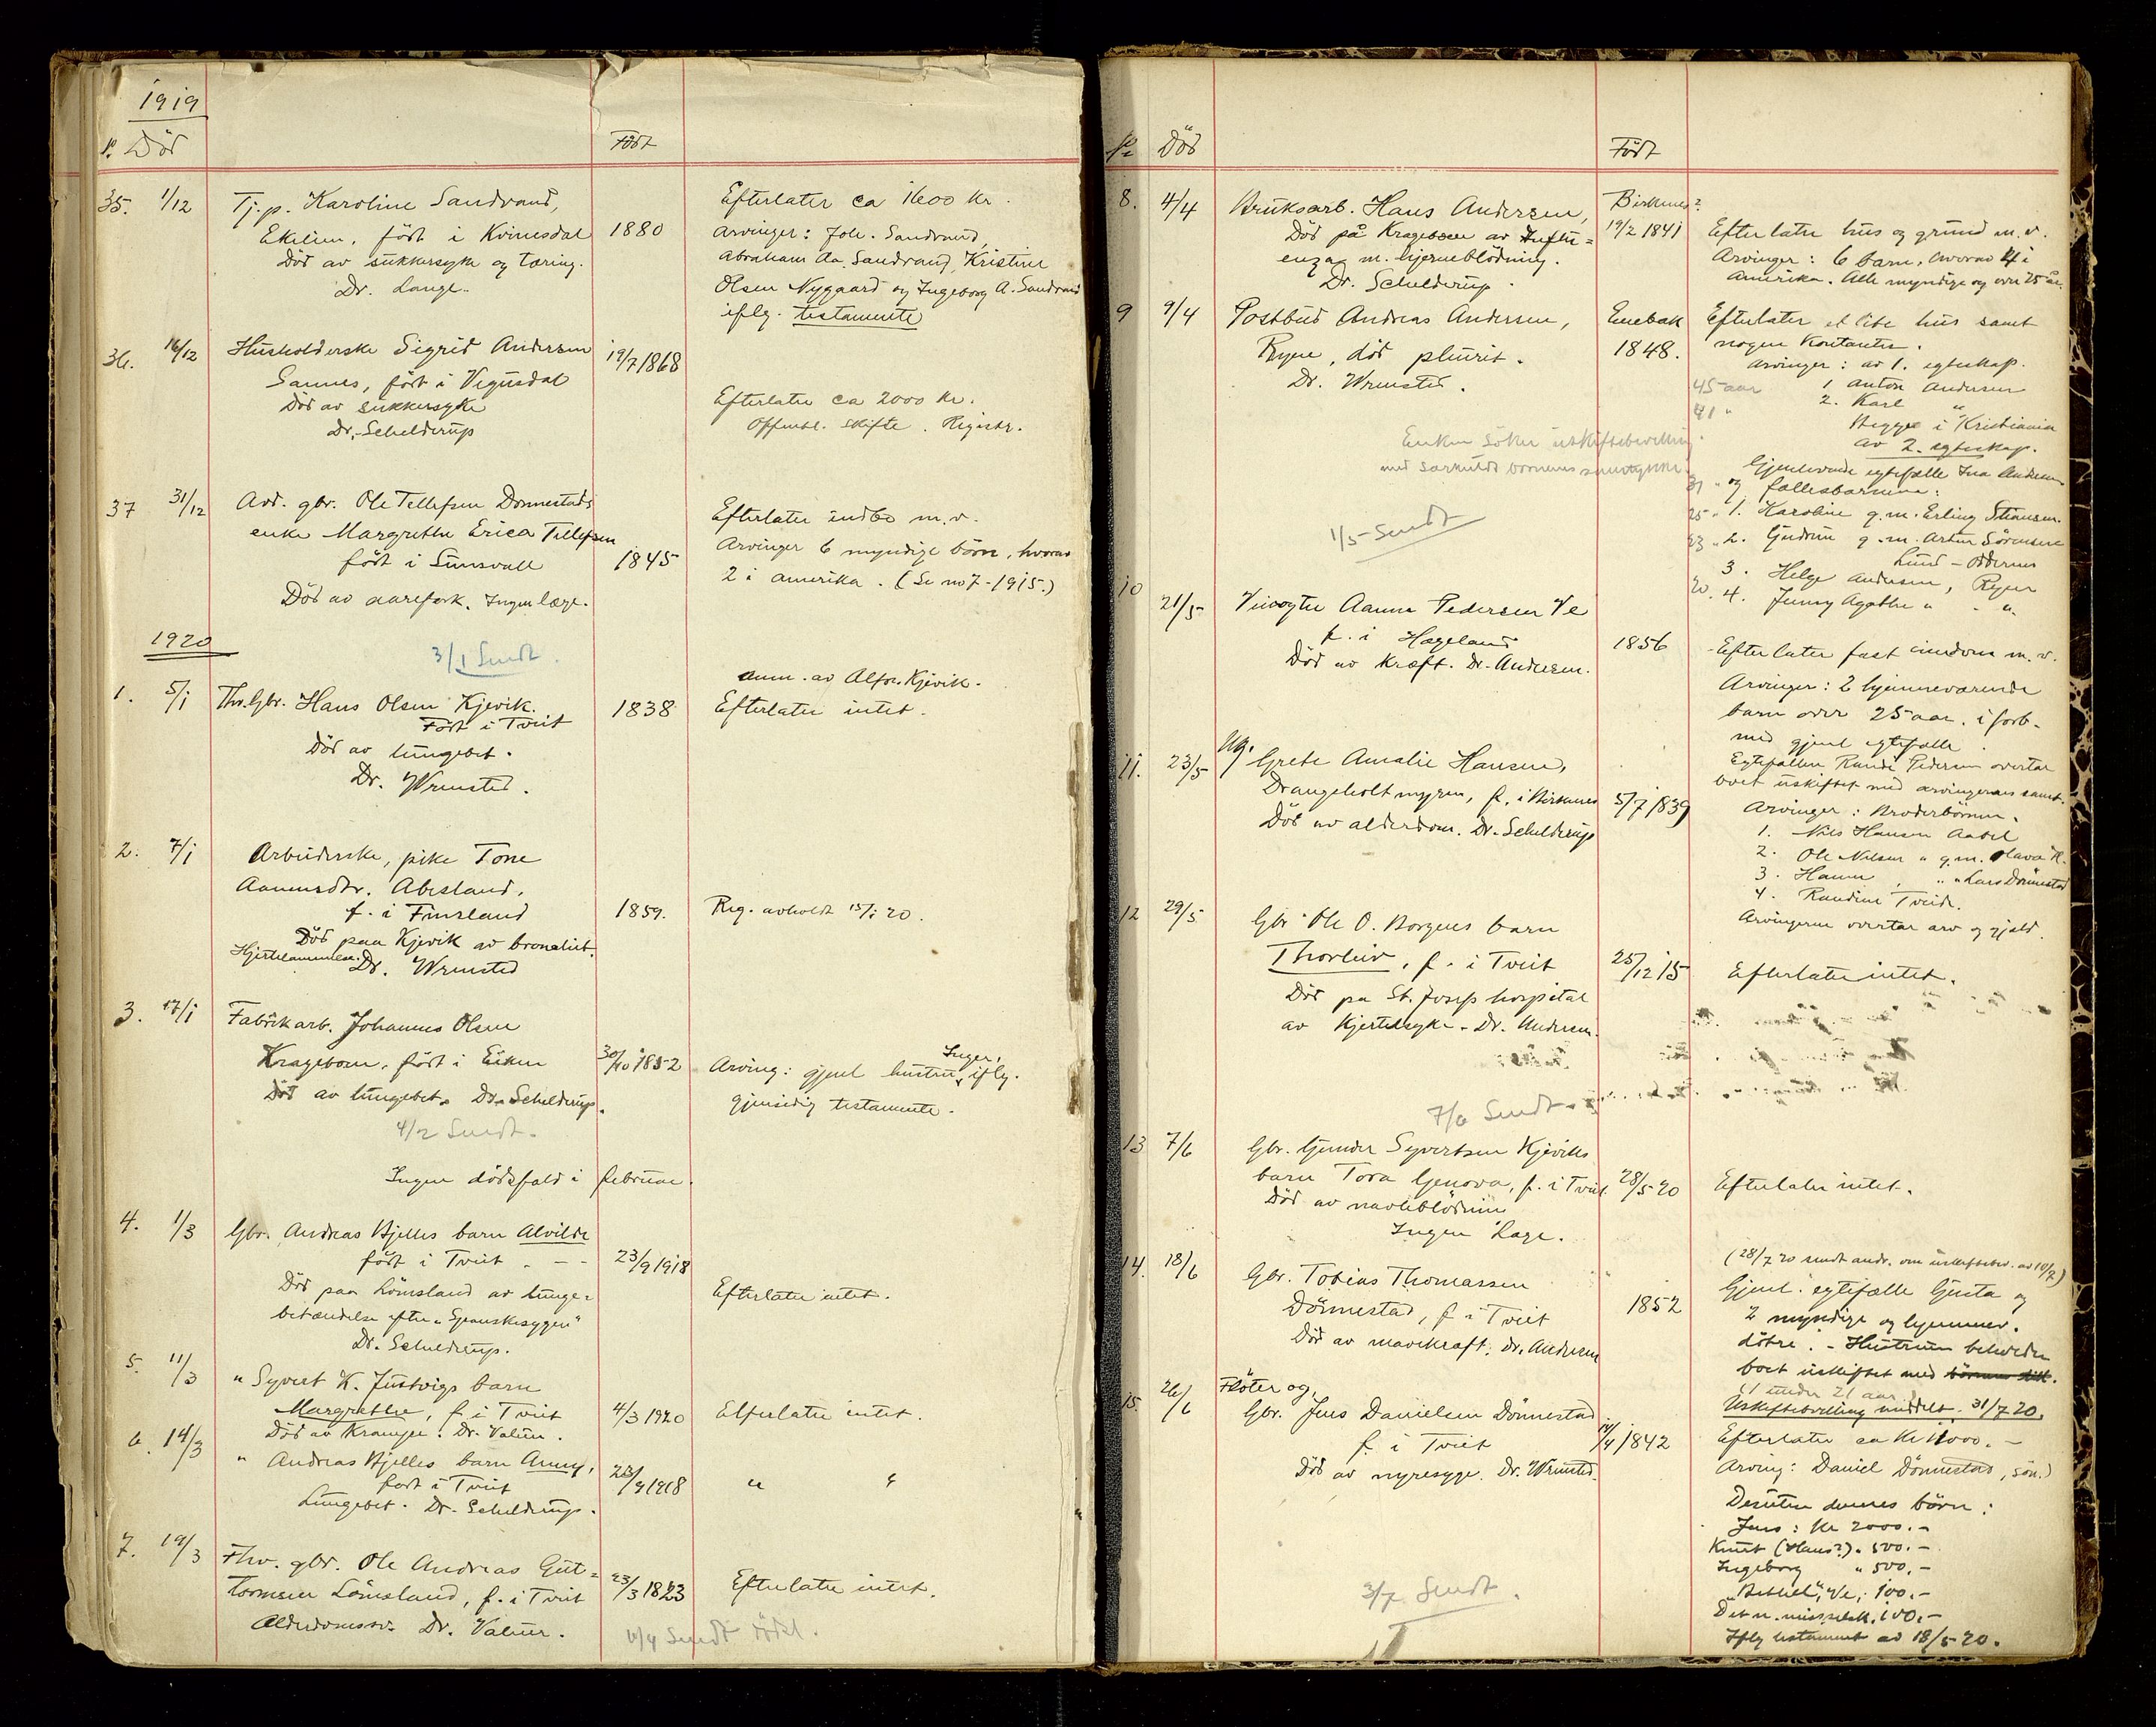 1919
No. Död
Född
35. 1/12 Tj.p. Karoline Sandvand,
Ekelien, født i Kvinesdal 1880
Död av sukkersyke og tæring.
Dr. Lange.
Efterlater ca 1600 kr.
Arvinger: Joh. Sandvand,
Abraham Aa. Sandvand, Kristine
Olsen Nygaard og Ingeborg A. Sandvand
iflg. testamente
36. 16/12 Husholderske Sigrid Andersen 19/7 1868
Sannes, födt i Vegusdal
Död av sukkersyke
Dr. Schelderup
Efterlater ca 2000 kr.
Offentl. skifte. Registr.
37 31/12 Avd. gbr. Ole Tellefsen Dønnestads
enke Margrethe Erica Tellefsen
født i Sunsvall 1845
Död av aarefork. Ingen læge.
Efterlater indbo m.v.
Arvinger 6 myndige börn, hvorav
2 i Amerika. (Se no 7 - 1915.)
1920
3/1 Sendt.
1. 5/1 Fhv. Gbr. Hans Olsen Kjevik. 1838
Födt i Tveit
Död av lungebet.
Dr. Wrensted.
anm. av Alfr. Kjevik.
Efterlater intet.
2. 7/1 Arbeiderske, pike Tone
Aanensdtr. Abesland,
f. i Finsland 1859.
Död paa Kjevik av bronchit.
Hjertelammelse. Dr. Wrensted
Reg. avholdt 15/1 20.
3. 17/1 Fabrikarb. Johannes Olsen
Krageboen, födt i Eiken 30/10 1852
Död av lungebet. Dr. Schelderup.
4/2 Sendt.
Arving: gjenl. hustru Inger, iflg.
gjensidig testamente.
Ingen dödsfald i februar.
4. 1/3 Gbr. Andreas Bjelles barn Alvilde
födt i Tveit. 23/9 1918
Död paa Lömsland av lunge-
betændelse efter "Spanskesygen"
Dr. Schelderup.
Efterlater intet.
5. 11/3 " Syvert K. Justvigs barn
Margrethe, f. i Tveit 4/3 1920
Död av Krampe. Dr. Valeur.
Efterlater intet.
6. 14/3 " Andreas Bjelles barn Anny,
født i Tveit 23/9 1918
Lungebet. Dr. Schelderup.
" "
7. 19/3 Fhv. gbr. Ole Andreas Gut-
tormsen Lömsland, f. i Tveit 23/3 1823
Alderdomssv. Dr. Valeur.
Efterlater intet.
Sendt dödsl.
No Död
Födt
8. 4/4 Bruksarb. Hans Andersen, Birkenes?
Död på Krageboen av Influ- 19/2 1841
enza m. hjerneblödning.
Dr. Schelderup.
Efterlater hus og grund m.v.
Arvinger: 6 barn, hvorav 4 i
Amerika. Alle myndige og over 25 år.
9 9/4 Postbud Andreas Andersen, Enebak
Ryen, död pleurit. 1848.
Dr. Wrensted.
Enken söker uskiftebevilling
med særkuldsbörnenes samtykke.
1/5 Sendt
Efterlater et lite hus samt
nogen Kontanter.
Arvinger: av 1. egteskap.
45 aar 1. Anton Andersen
41 " 2. Karl "
Begge i Kristiania
av 2. egteskap.
Gjenlevende egtefælle Ina Andersen
og fællesbarnene:
25 " 1. Karoline g.m. Erling Stiansen.
23 " 2. Gudrun g.m. Artur Sörensen
Lund - Oddernes
3. Helge Andersen, Ryen
20. 4. Jenny Agathe " - "
10 21/5 Aanen Pedersen Ve
f. i Hægeland 1856
Död av kræft. Dr. Andersen.
Efterlater fast eiendom m.v.
Arvinger: 2 hjemmeværende
barn over 25 aar, i forb.
med gjenl. egtefælle.
Egtefællen Randi Pedersen overtar
boet uskiftet med arvingernes samt.
11. 23/5 Ug. Grete Amalie Hansen,
Drangsholtmyren, f. i Birkenes 5/7 1839
Död av alderdom. Dr. Schelderup
Arvinger: Broderbörnene.
1. Nils Hansen Aabel
2. Ole Nilsen " g.m. Olava H.
3. Hanne " " Lars Dönnestad
4. Randine Tveide.
Arvingerne overtar arv og gjæld.
12 29/5 Gbr. Ole O. Borgens barn
Thorleiv, f. i Tveit 25/12 15
Död pa St. Josefs hospital
av Kjertelsyke. Dr. Andersen.
Efterlater intet.
7/6 Sendt.
13 7/6 Gbr. Gunder Syvertsen Kjeviks
barn Tora Genova, f. i Tveit 28/5 20
Död av navleblödning
Ingen Læge.
Efterlater intet.
14. 18/6 Gbr. Tobias Thomassen
Dönnestad, f. i Tveit 1852
Död av mavekræft. Dr. Andersen
(28/7 20 sendt andr. om uskiftebev. av 10/7)
Gjenl. egtefælle Gusta og
2 myndige og hjemmev.
dötre. - Hustruen beholder
boet uskiftet med
(1 under 21 aar.)
Uskiftebevilling meddelt 31/7 20.
15 26/6 Flöter og
Gbr. Jens Danielsen Dönnestad
f. i Tveit 1842
Död av nyresyge. Dr. Wrensted.
3/7 Sendt.
Efterlater ca Kr. 11000.-
Arving: Daniel Dönnestad, (sön.)
Desuten dennes börn:
Jens: Kr 2000.-
Knut (Hans?) " 500.-
Ingeborg " 500.-
"Bethel", Ve, 100.-
Det n. misselsk. 100.-
Iflg testament av 18/5 20.